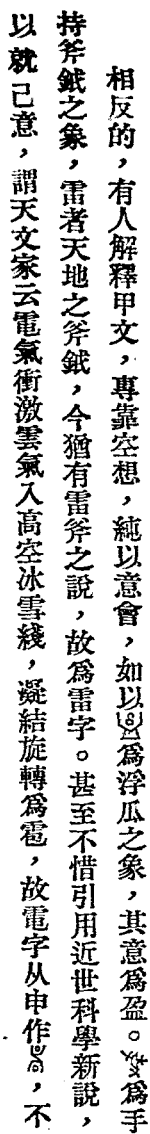 相反的，有人解釋甲文，專靠空想，純以意會，如以為浮瓜之象，其意為盈。為手
持斧鉞之象，雷者天地之斧鉞，今猶有雷斧之說，故為雷字。甚至不惜引用近世科學新說，
以就己意，謂天文家云電氣衝激雲氣入高空冰雪綫，凝結旋轉為雹，故電字从申作，不